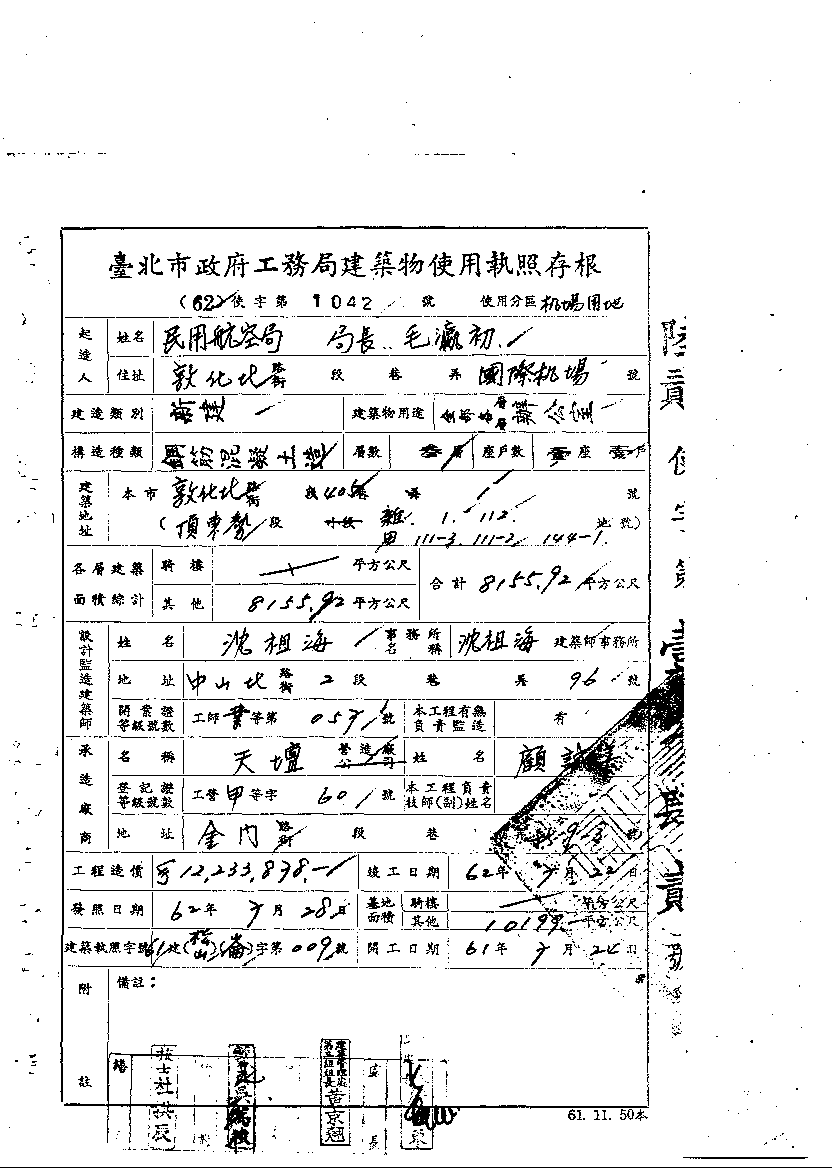 臺北市政府工務局建築物使用執照存根
(62)使字第 1042 號 使用分區 机場用地
起造人 姓名 民用航空局 局長 毛瀛初
住址 敦化北路街 段 巷 弄 國際机場 號
建造類別 新建 建築物用途 辦公室
構造種類 鋼筋混凝土造 層數 叁層 座戶數 壹座 壹戶
建築地址 本市 敦化北路街 段405巷 弄 號
(頂東勢段 小段 1. 112. 111-3. 111-2 144-1. 地號)
各層建築面積綜計 騎樓 平方公尺 合計 8155.92 平方公尺
其他 8155.92 平方公尺
設計監造建築師 姓名 沈祖海 事務所名稱 沈祖海 建築師事務所
地址 中山北路街 2段 巷 弄 96 號
開業證等級號數 工師 等第 號 本工程有無負責監造 有
承造廠商 名稱 天壇 營造廠公司 姓名 顧
登記證等級號數 工營甲等字 601 號 本工程負責技師(副)姓名
地址 金門路街 段 巷 號
工程造價 12,233,838.- 竣工日期 62年 月22日
發照日期 62年 月28日 基地面積 騎樓 平方公尺
其他 10199 平方公尺
建築執照字號 61建(松山)(崙)字第009號 開工日期 61年 月24日
附註 備註:
技士杜拱辰
黃京翹
61. 11. 50本
陸貳使字第壹